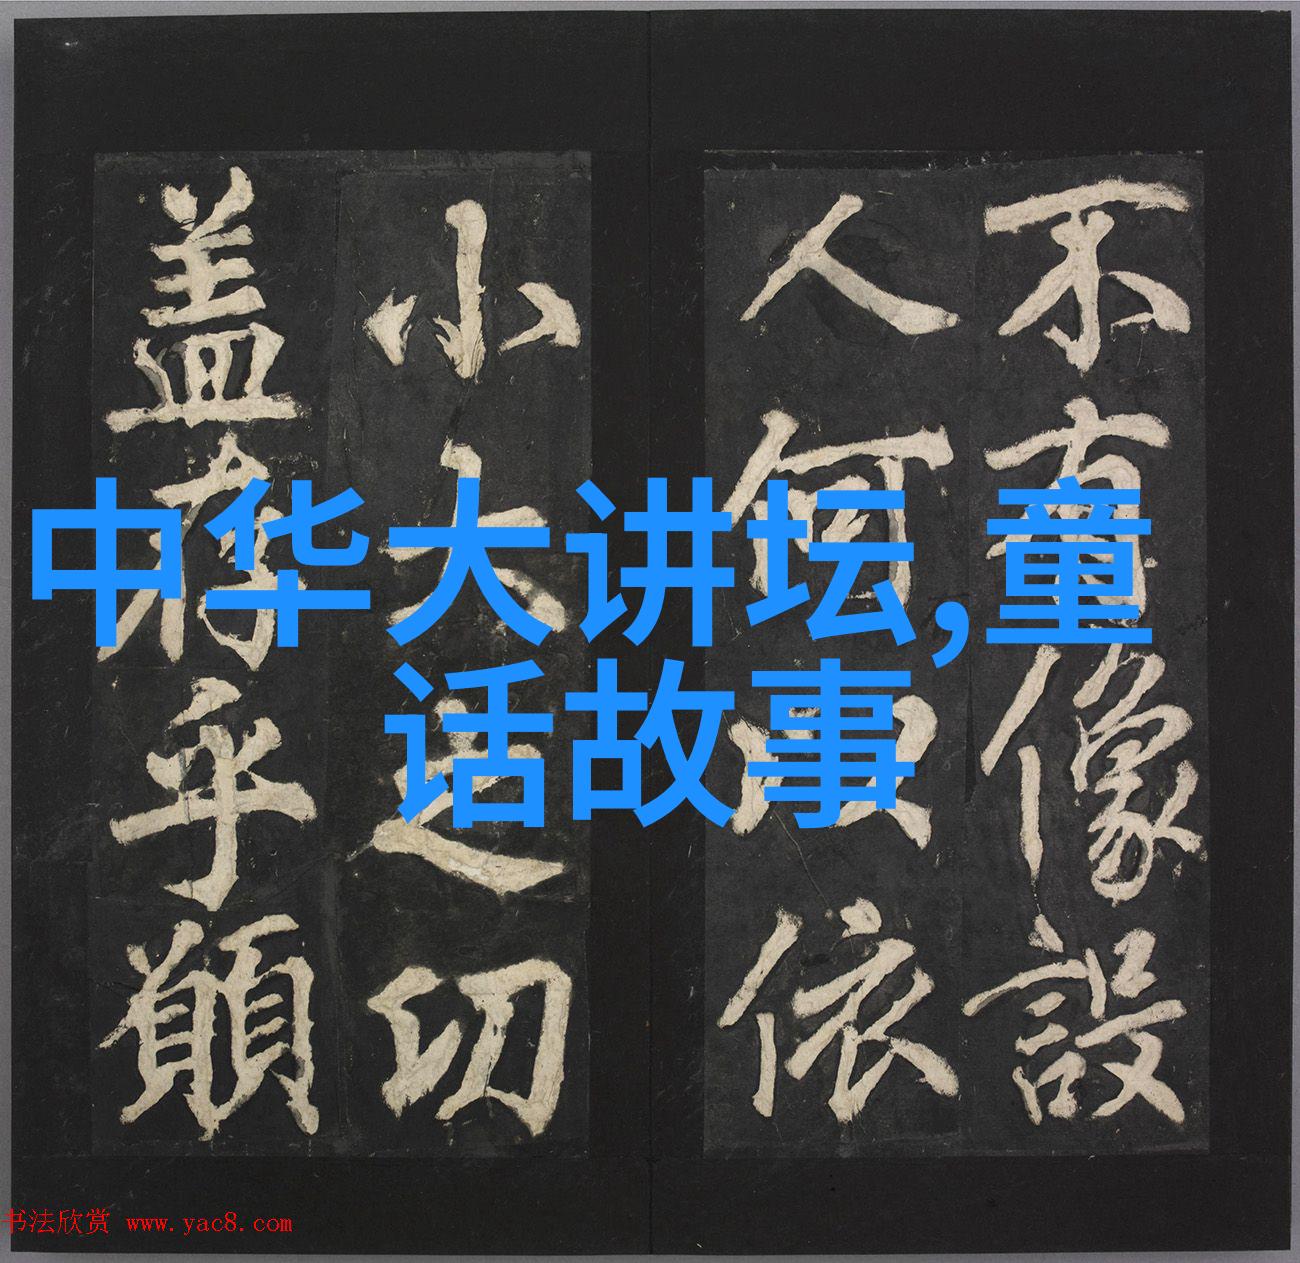 不有像設
人何以依
小大之切
盖存乎願
中华大讲坛,童
话故事
书法欣赏 www.yac8.com